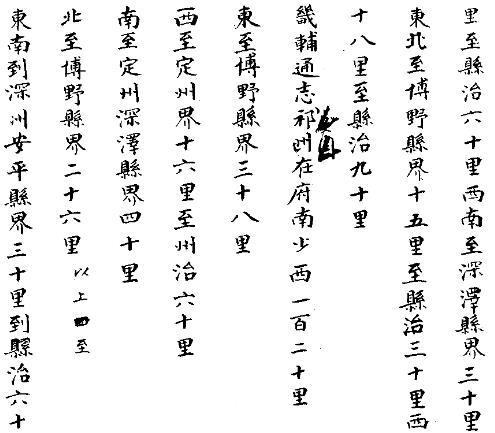 里至縣治六十里西南至深澤縣界三十里
東北至博野縣界十五里至縣治三十里西
十八里至縣治九十里
畿輔通志祁州在府南少西一百二十里
東至博野縣界三十八里
西至定州界十六里至州治六十里
南至定州深澤縣界四十里
北至博野縣界二十六里以上四至
東南到深州安平縣界三十里到縣治六十